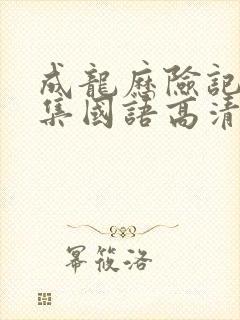 成龍歷險記
集國語高清
幂筱洛